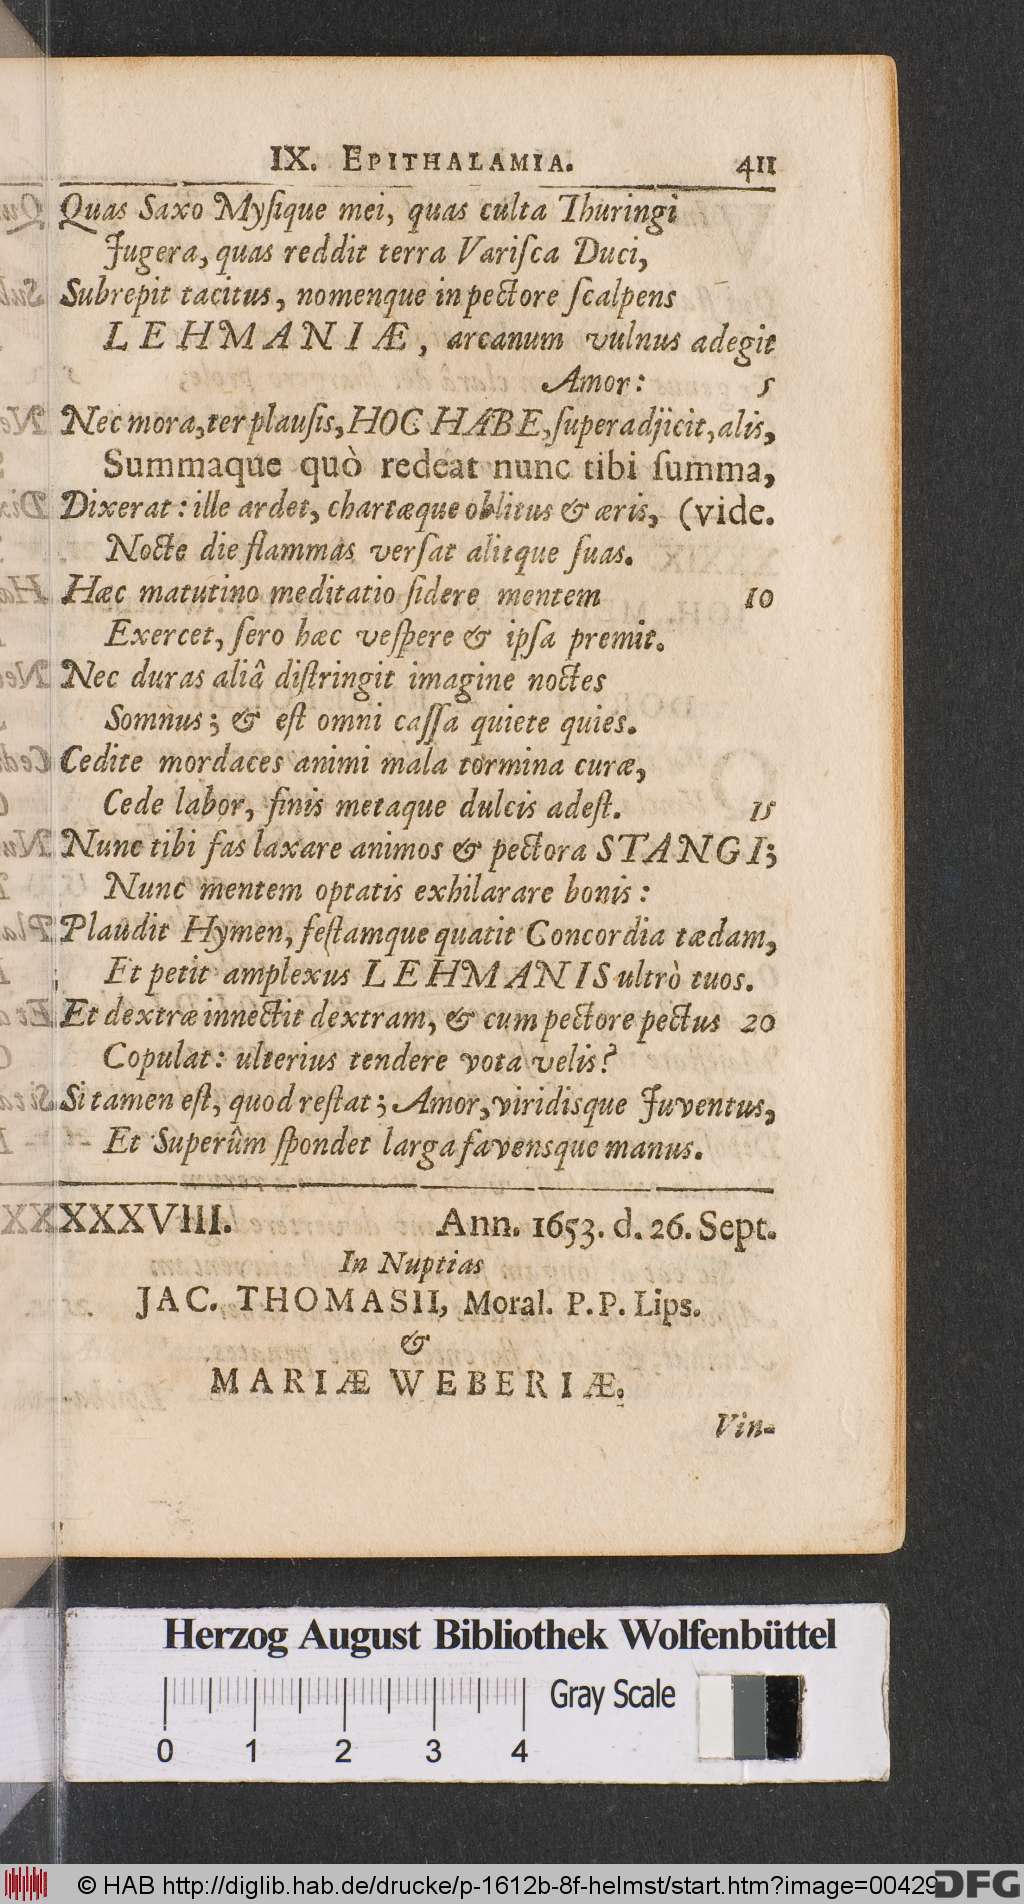 IX. EPITHALAMIA. 411
Quas Saxo Myſique mei, quas culta Thuringi
Jugera, quas reddit terra Variſca Duci,
Subrepit tacitus, nomenque in pectore ſcalpens
LEHMANIÆ, arcanum vulnus adegit
Amor: 5
Nec mora, ter plauſis, HOC HABE, ſuperadjicit, alis,
Summaque quò redeat nunc tibi ſumma,
Dixerat: ille ardet, chartæque oblitus & æris, (vide.
Nocte die flammas verſat alitque ſuas.
Hæc matutino meditatio ſidere mentem 10
Exercet, ſero hæc veſpere & ipſa premit.
Nec duras aliâ diſtringit imagine noctes
Somnus; & eſt omni caſſa quiete quies.
Cedite mordaces animi mala tormina curæ,
Cede labor, finis metaque dulcis adeſt. 15
Nunc tibi fas laxare animos & pectora STANGI;
Nunc mentem optatis exhilarare bonis:
Plaudit Hymen, feſtamque quatit Concordia tædam,
Et petit amplexus LEHMANIS ultrò tuos.
Et dextræ innectit dextram, & cum pectore pectus 20
Copulat: ulterius tendere vota velis?
Si tamen eſt, quod reſtat; Amor, viridisque Juventus,
Et Superûm ſpondet larga favensque manus.
XXXXXVIII. Ann. 1653. d. 26. Sept.
In Nuptias
JAC. THOMASII, Moral. P. P. Lips.
&
MARIÆ WEBERIÆ.
Vin-
Herzog August Bibliothek Wolfenbüttel
Gray Scale
0 1 2 3 4
© HAB http://diglib.hab.de/drucke/p-1612b-8f-helmst/start.htm?image=00429
DFG